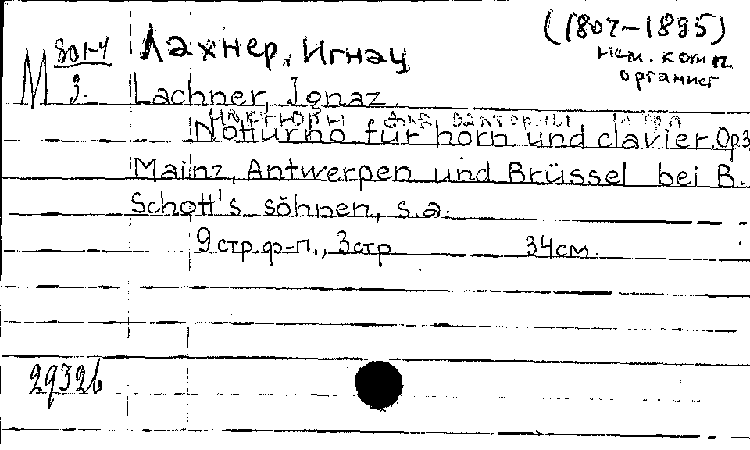 (1807-1895)
нем. комп.
органист
М 801-4
3.
Лахнер, Игнац
Lachner, Ignaz.
Notturno für horn und clavier. Op3
Mainz, Antwerpen und Brüssel bei B.
Schott's söhnen, s.a.
9 стр. ф-п., 3 стр 34 см.
29326